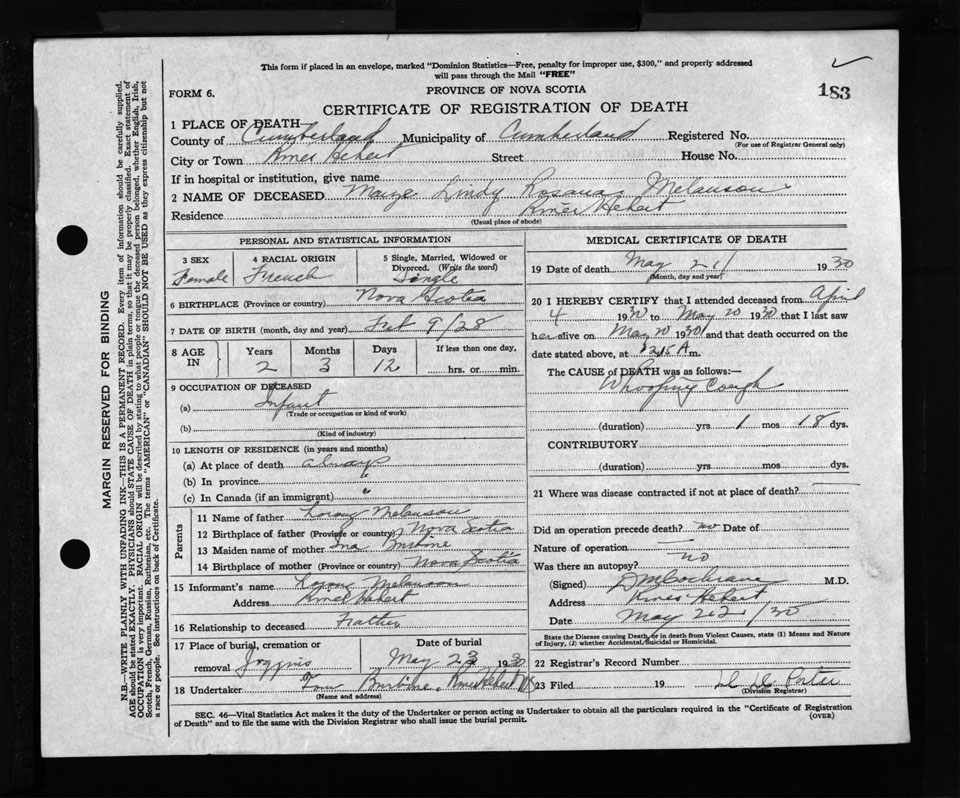 This form if placed in an envelope, marked "Dominion Statistics—Free, penalty for improper use, $300," and properly addressed
will pass through the Mail "FREE"
FORM 6.
PROVINCE OF NOVA SCOTIA
183
CERTIFICATE OF REGISTRATION OF DEATH
1 PLACE OF DEATH
County of Cumberland Municipality of Cumberland Registered No.
(For use of Registrar General only)
City or Town River Hebert Street House No.
If in hospital or institution, give name
2 NAME OF DECEASED Lindy Melanson
Residence River Hebert
(Usual place of abode)
PERSONAL AND STATISTICAL INFORMATION
3 SEX Female
4 RACIAL ORIGIN French
5 Single, Married, Widowed or Divorced. (Write the word) Single
6 BIRTHPLACE (Province or country) Nova Scotia
7 DATE OF BIRTH (month, day and year) Feb 9/28
8 AGE IN Years 2 Months 3 Days 12 If less than one day, hrs. or min.
9 OCCUPATION OF DECEASED
(a) Infant
(Trade or occupation or kind of work)
(b)
(Kind of industry)
10 LENGTH OF RESIDENCE (in years and months)
(a) At place of death always
(b) In province "
(c) In Canada (if an immigrant) "
Parents
11 Name of father Melanson
12 Birthplace of father (Province or country) Nova Scotia
13 Maiden name of mother Ina
14 Birthplace of mother (Province or country) Nova Scotia
15 Informant's name Melanson
Address River Hebert
16 Relationship to deceased Father
17 Place of burial, cremation or removal Joggins
Date of burial May 23 1930
18 Undertaker Burbine, River Hebert NS
(Name and address)
MEDICAL CERTIFICATE OF DEATH
19 Date of death May 21 1930
(Month, day and year)
20 I HEREBY CERTIFY that I attended deceased from April
4 1930 to May 20 1930 that I last saw
her alive on May 20 1930 and that death occurred on the
date stated above, at 3.45 A m.
The CAUSE of DEATH was as follows:—
Whooping Cough
(duration) yrs 1 mos 18 dys.
CONTRIBUTORY
(duration) yrs. mos. dys.
21 Where was disease contracted if not at place of death?
Did an operation precede death? no Date of
Nature of operation
Was there an autopsy? no
(Signed) Cochrane M.D.
Address River Hebert
Date May 22/30
State the Disease causing Death, or in death from Violent Causes, state (1) Means and Nature
of Injury, (2) whether Accidental, Suicidal or Homicidal.
22 Registrar's Record Number
23 Filed 19 Porter
(Division Registrar)
SEC. 46—Vital Statistics Act makes it the duty of the Undertaker or person acting as Undertaker to obtain all the particulars required in the "Certificate of Registration
of Death" and to file the same with the Division Registrar who shall issue the burial permit.
(OVER)
MARGIN RESERVED FOR BINDING
N.B.—WRITE PLAINLY WITH UNFADING INK—THIS IS A PERMANENT RECORD. Every item of information should be carefully supplied.
AGE should be stated EXACTLY. PHYSICIANS should STATE CAUSE OF DEATH in plain terms, so that it may be properly classified. Exact statement of
OCCUPATION is very important. RACIAL ORIGIN will be described by stating to what people or tongue the deceased person belonged, whether English, Irish,
Scotch, French, German, Russian, Ruthenian, etc. The terms "AMERICAN" or "CANADIAN" SHOULD NOT BE USED as they express citizenship but not
a race or people. See instructions on back of Certificate.